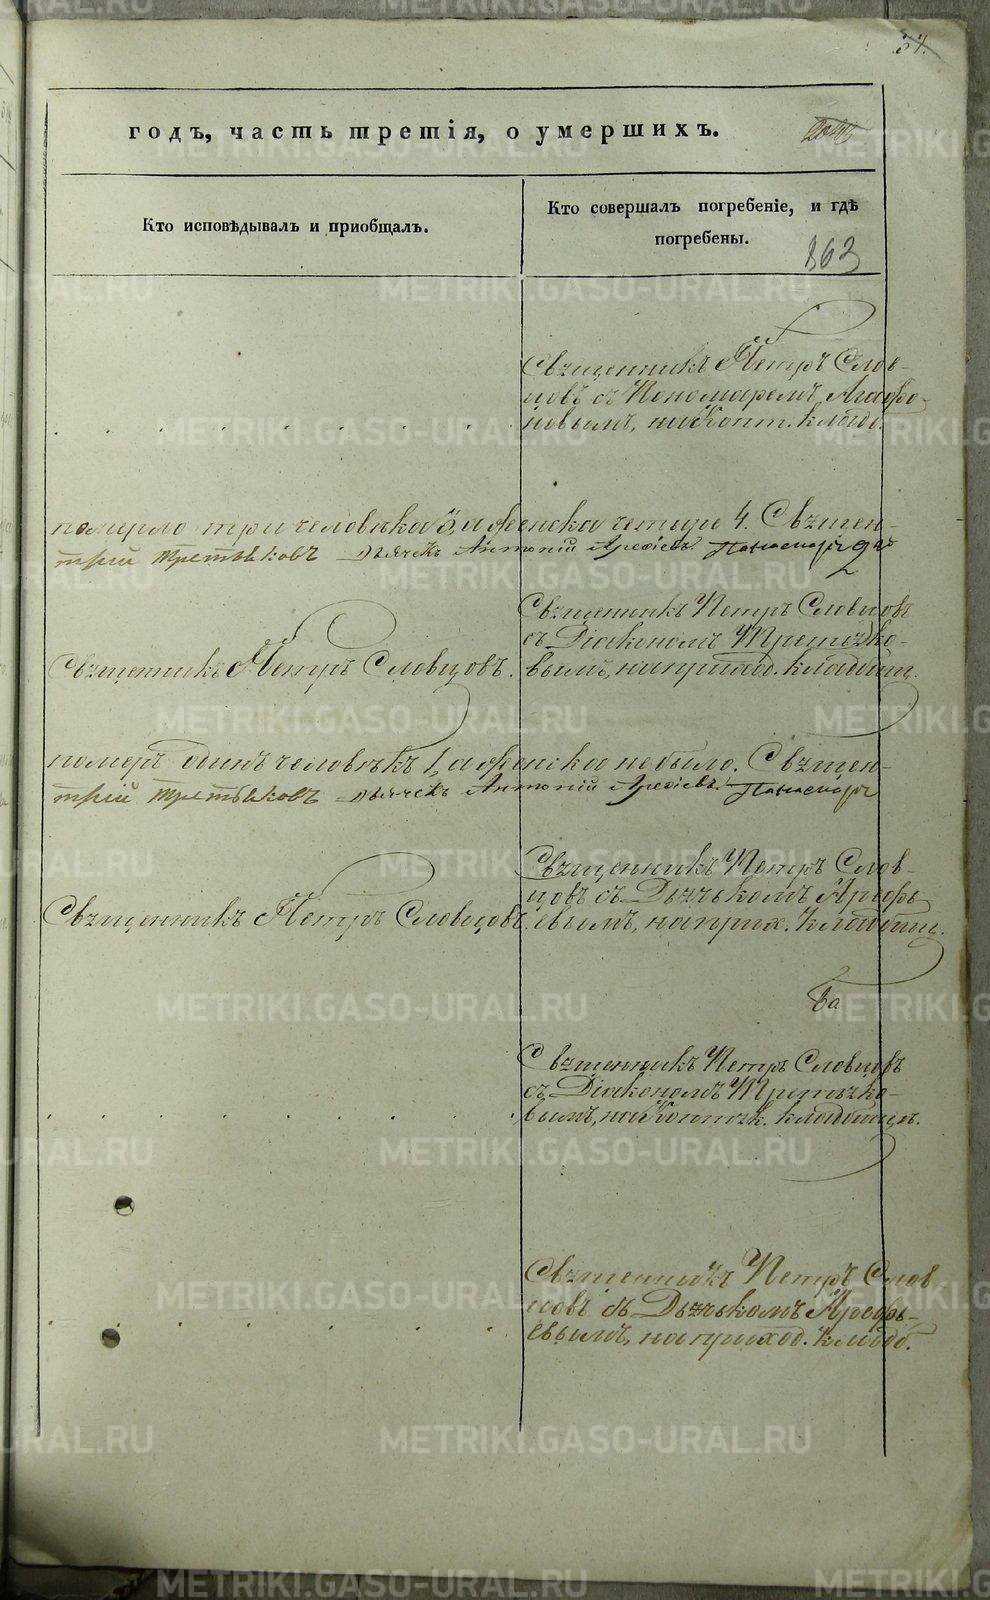 34.
годъ, часть третія, о умершихъ.
Кто исповѣдывалъ и приобщалъ.
Кто совершалъ погребеніе, и гдѣ
погребены.
363
Священникъ Петръ Слов-
цовъ съ Пономаремъ Агафо-
новымъ, на Копт. кладб.
померло три человѣка 3, а женска четыре 4. Священ-
трій Третьяковъ Дьячекъ Антоній Арефіевъ. Пономарь
Священникъ Петръ Словцовъ
съ Діакономъ Третьяко-
Священникъ Петръ Словцовъ.
вымъ, на приход. кладбищ.
померъ одинъ человѣкъ 1, а женска не было. Священ-
трій Третьяковъ Дьячекъ Антоній Арефіевъ. Пономарь
Священникъ Петръ Слов-
цовъ съ Дьячькомъ Арефь
Священникъ Петръ Словцовъ.
евымъ, на прих. кладбищ.
Священникъ Петръ Словцовъ
съ Діакономъ Третьяко-
вымъ, на Коптяк. кладбищѣ.
Священникъ Петръ Слов
цовъ съ Дьячькомъ Арефь-
евымъ, на приход. кладб.
METRIKI.GASO-URAL.RU